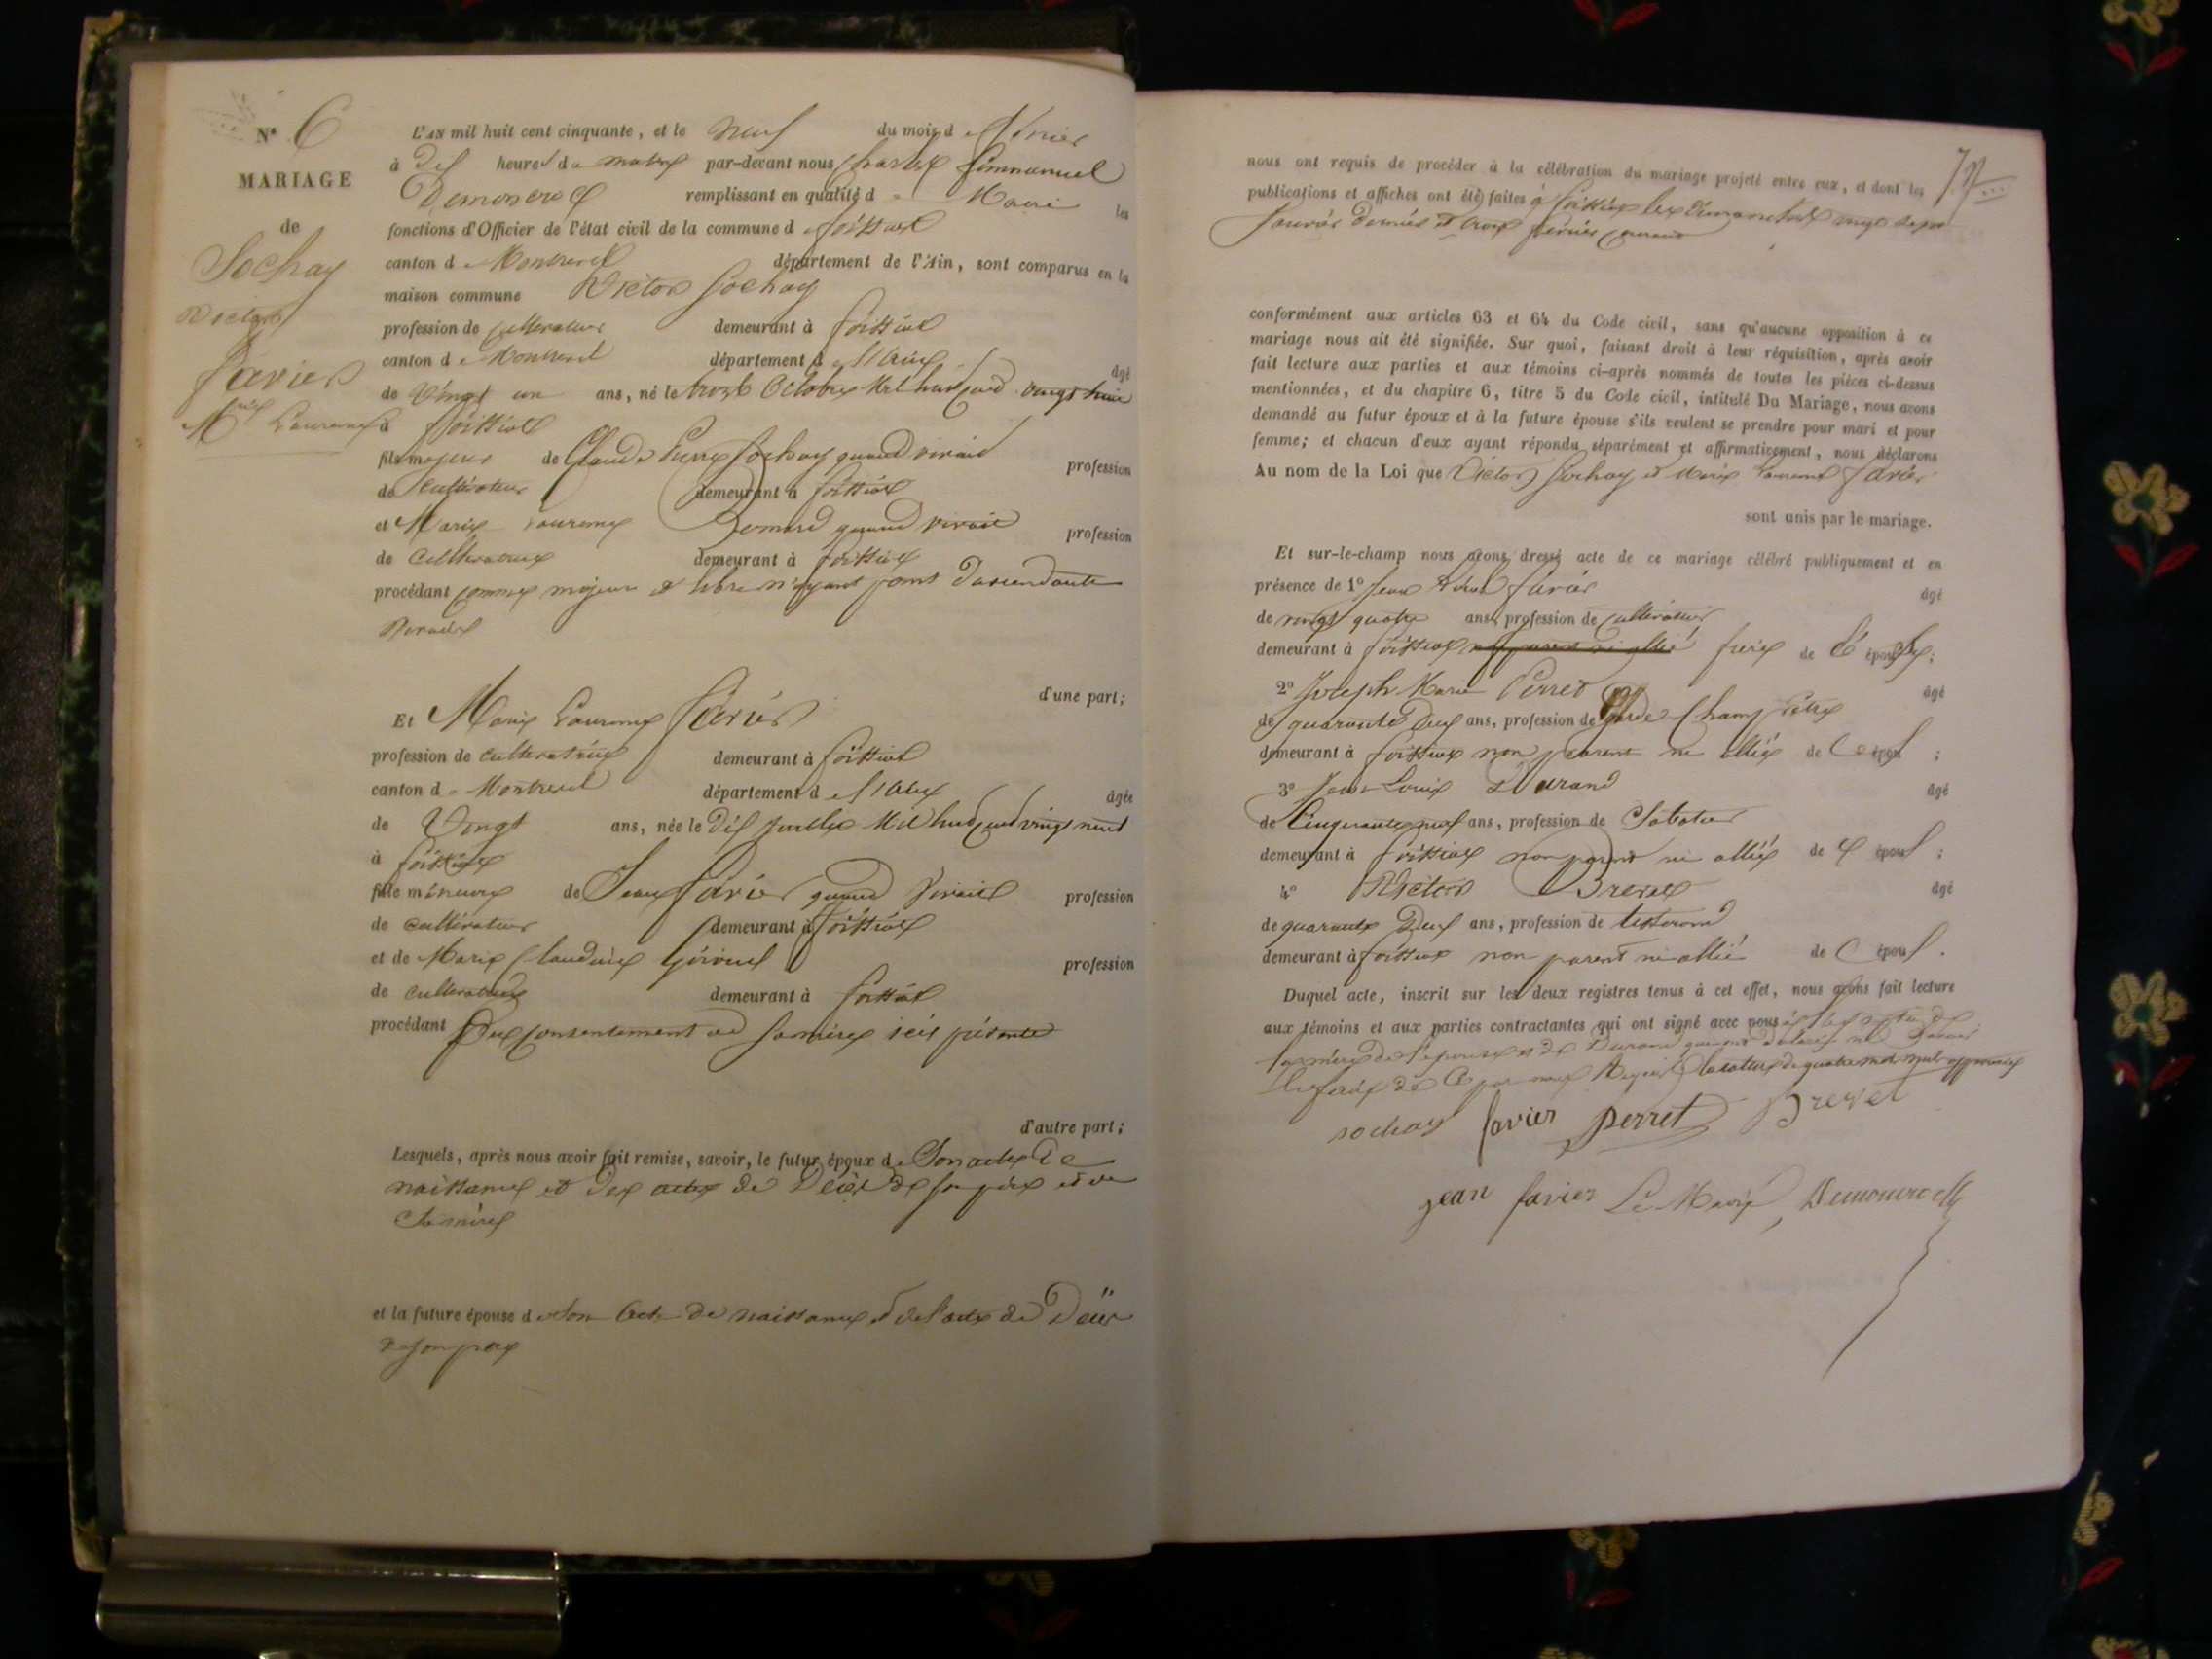 Nº 6
MARIAGE
de
Sochay
Victor
Favier
Mie Laurence
L'AN mil huit cent cinquante, et le neuf du mois de février
à dix heures du matin par-devant nous Charles Emmanuel
remplissant en qualité de Maire les
fonctions d'Officier de l'état civil de la commune de foissiat
canton de Montrevel département de l'Ain, sont comparus en la
maison commune Victor Sochay
profession de cultivateur demeurant à foissiat
canton de Montrevel département de l'Ain âgé
de vingt un ans, né le trois Octobre Mil huit cent vingt huit
à foissiat
fils majeur de Claude Pierre Sochay quand vivait profession
de cultivateur demeurant à foissiat
et Marie Laurence quand vivait profession
de cultivatrice demeurant à foissiat
procédant comme majeur et libre n'ayant point d'ascendants
d'une part;
Et Marie Laurence favier
profession de cultivatrice demeurant à foissiat
canton de Montrevel département de l'Ain âgée
de Vingt ans, née le dix juillet Mil huit cent vingt neuf
à foissiat
fille mineure de Jean favier quand vivait profession
de cultivateur demeurant à foissiat
et de Marie Claudine profession
de cultivatrice demeurant à foissiat
procédant du consentement de sa mère ici présente
d'autre part;
Lesquels, après nous avoir fait remise, savoir, le futur époux de son acte de
naissance et des actes de décès de son père et de
sa mère
et la future épouse de son acte de naissance et de l'acte de décès
de son père
nous ont requis de procéder à la célébration du mariage projeté entre eux, et dont les
publications et affiches ont été faites à foissiat les dimanches vingt sept
janvier dernier et trois février courant
conformément aux articles 63 et 64 du Code civil, sans qu'aucune opposition à ce
mariage nous ait été signifiée. Sur quoi, faisant droit à leur réquisition, après avoir
fait lecture aux parties et aux témoins ci-après nommés de toutes les pièces ci-dessus
mentionnées, et du chapitre 6, titre 5 du Code civil, intitulé Du Mariage, nous avons
demandé au futur époux et à la future épouse s'ils veulent se prendre pour mari et pour
femme; et chacun d'eux ayant répondu séparément et affirmativement, nous déclarons
Au nom de la Loi que Victor Sochay et Marie Laurence favier
sont unis par le mariage.
Et sur-le-champ nous avons dressé acte de ce mariage célébré publiquement et en
présence de 1º Jean favier âgé
de vingt quatre ans, profession de cultivateur
demeurant à foissiat non parent ni allié frère de l'épouse;
2º Joseph Marie Perret âgé
de quarante deux ans, profession de garde champêtre
demeurant à foissiat non parent ni allié de l'époux;
3º Jean Louis Durand âgé
de cinquante neuf ans, profession de Sabotier
demeurant à foissiat non parent ni allié de l'époux;
4º Victor Brevet âgé
de quarante deux ans, profession de tisserand
demeurant à foissiat non parent ni allié de l'époux.
Duquel acte, inscrit sur les deux registres tenus à cet effet, nous avons fait lecture
aux témoins et aux parties contractantes qui ont signé avec nous
la mère de l'épouse et de Durand qui ont déclaré ne savoir
la rature de quatre mots nuls approuvée
sochay favier perret Brevet
jean favier Le Maire,